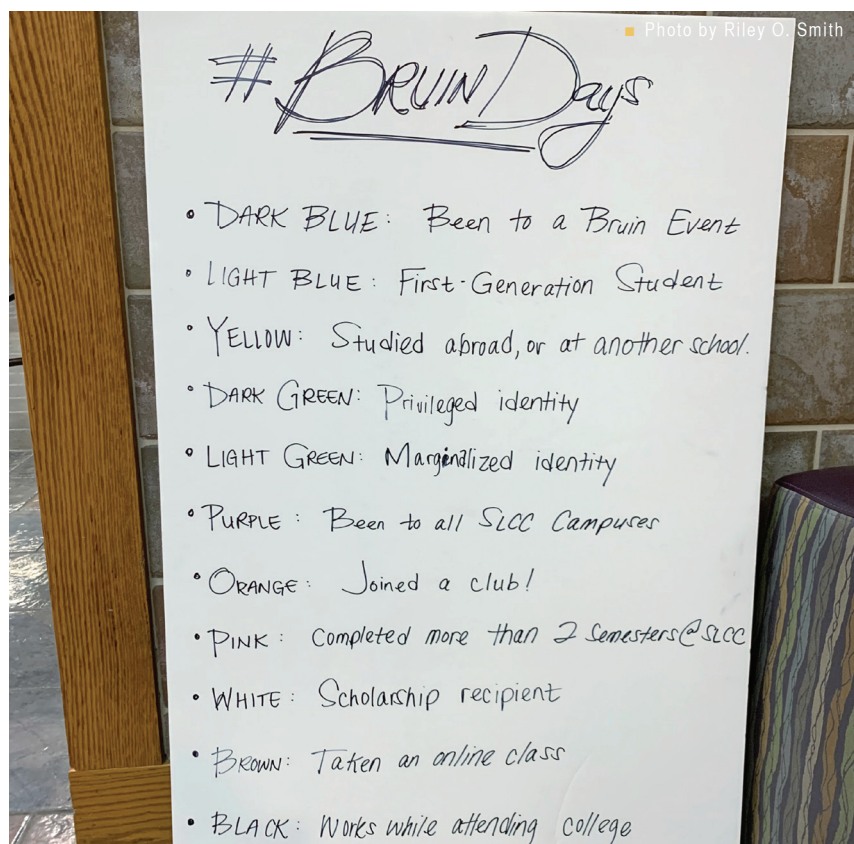 Photo by Riley O. Smith
# BRUIN Days
• DARK BLUE: Been to a Bruin Event
• LIGHT BLUE: First-Generation Student
• YELLOW: Studied abroad, or at another school.
• DARK GREEN: Privileged identity
• LIGHT GREEN: Marginalized identity
• PURPLE: Been to all SLCC Campuses
• ORANGE: Joined a club!
• PINK: Completed more than 2 Semesters@SLCC
• WHITE: Scholarship recipient
• BROWN: Taken an online class
• BLACK: Works while attending college